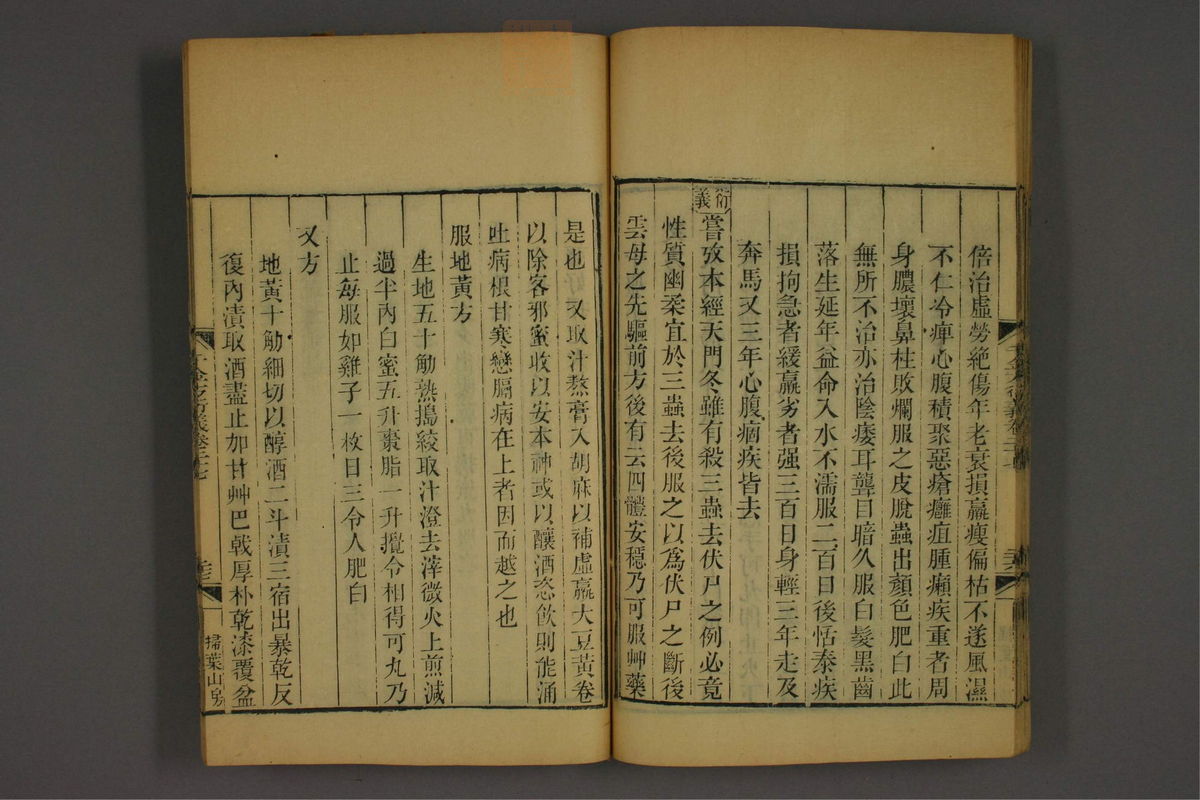 倍治虛勞絶傷年老衰損羸瘦偏枯不遂風濕
不仁冷痺心腹積聚惡瘡癰疽腫癩疾重者周
身膿壞鼻柱敗爛服之皮脫蟲出顏色肥白此
無所不治亦治陰痿耳聾目暗久服白髮黑齒
落生延年益命入水不濡服二百日後恬泰疾
損拘急者緩羸劣者强三百日身輕三年走及
奔馬又三年心腹痼疾皆去
衍義嘗攷本經天門冬雖有殺三蟲去伏尸之例必竟
性質幽柔宜於三蟲去後服之以爲伏尸之斷後
雲母之先驅前方後有云四體安穩乃可服艸藥
是也 又取汁熬膏入胡麻以補虛羸大豆黃卷
以除客邪蜜收以安本神或以釀酒恣飮則能涌
吐病根甘寒戀膈病在上者因而越之也
服地黃方
生地五十觔熟搗絞取汁澄去滓微火上煎減
過半內白蜜五升棗脂一升攪令相得可丸乃
止每服如雞子一枚日三令人肥白
又方
地黃十觔細切以醇酒二斗漬三宿出暴乾反
復內漬取酒盡止加甘艸巴戟厚朴乾漆覆盆
掃葉山房